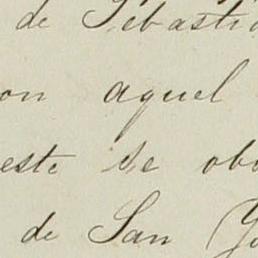 de Sebasti
on aquel
este se ob
de San